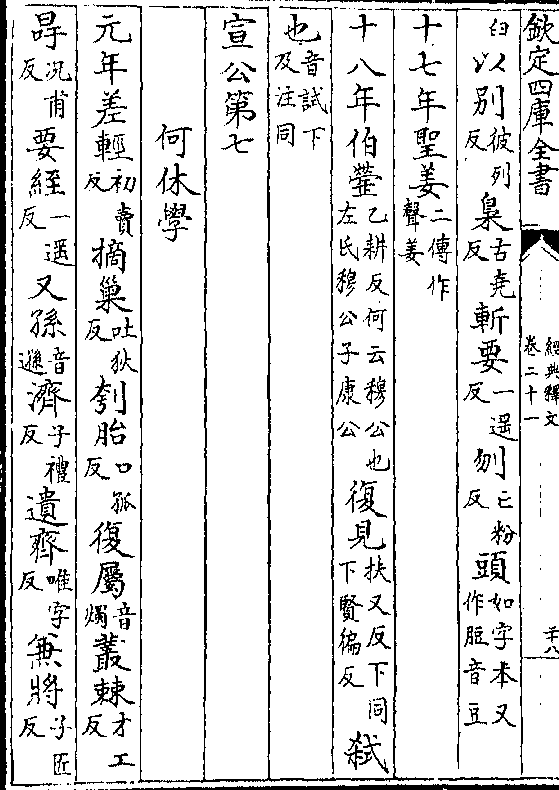 欽定四庫全書 經典釋文卷二十一 十八
臼以別彼列反梟古堯反斬要一遥反刎亡粉反頭如字本又作脰音豆
十七年聖姜二傳作聲姜
十八年伯罃乙耕反何云穆公也左氏穆公子康公復見扶又反下同下賢編反弑
音試下及注同也
宣公第七
何休學
元年差輕初賣反摘巢吐狄反刳胎口孤反復屬音燭叢棘才工反
冔况甫反要絰一遥反又孫音遜濟子禮反遺齊唯字反兼將子匠反